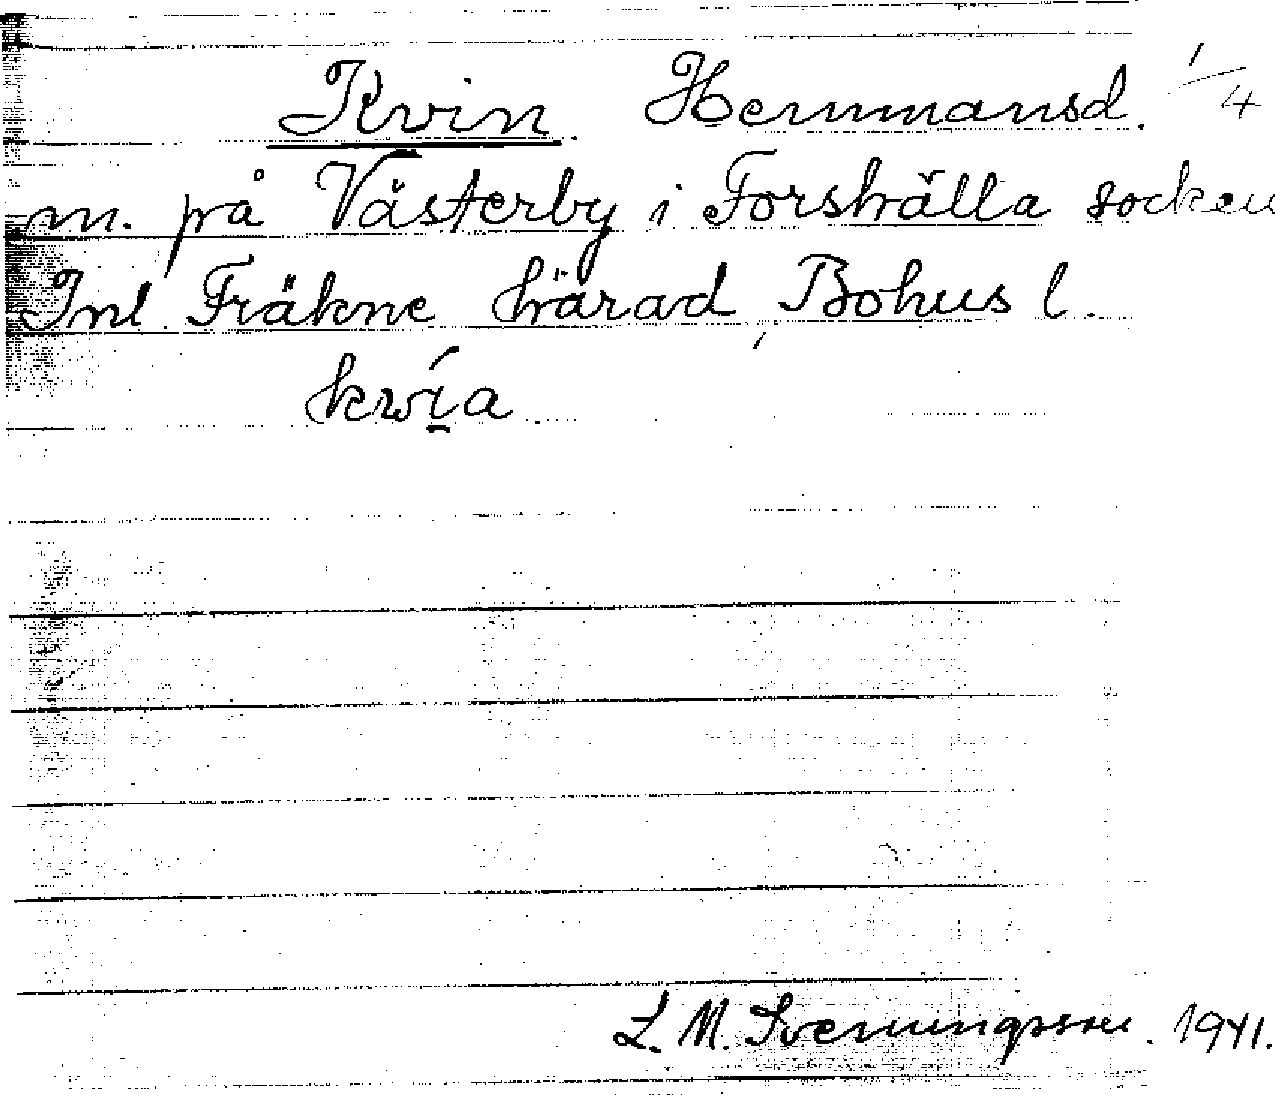 Kvin Hermmansd. 1/4
m. på Västerby i Forshälla socken
Inl. Fräkne härad, Bohus l.
kwía
L. M. Svenungsson. 1941.